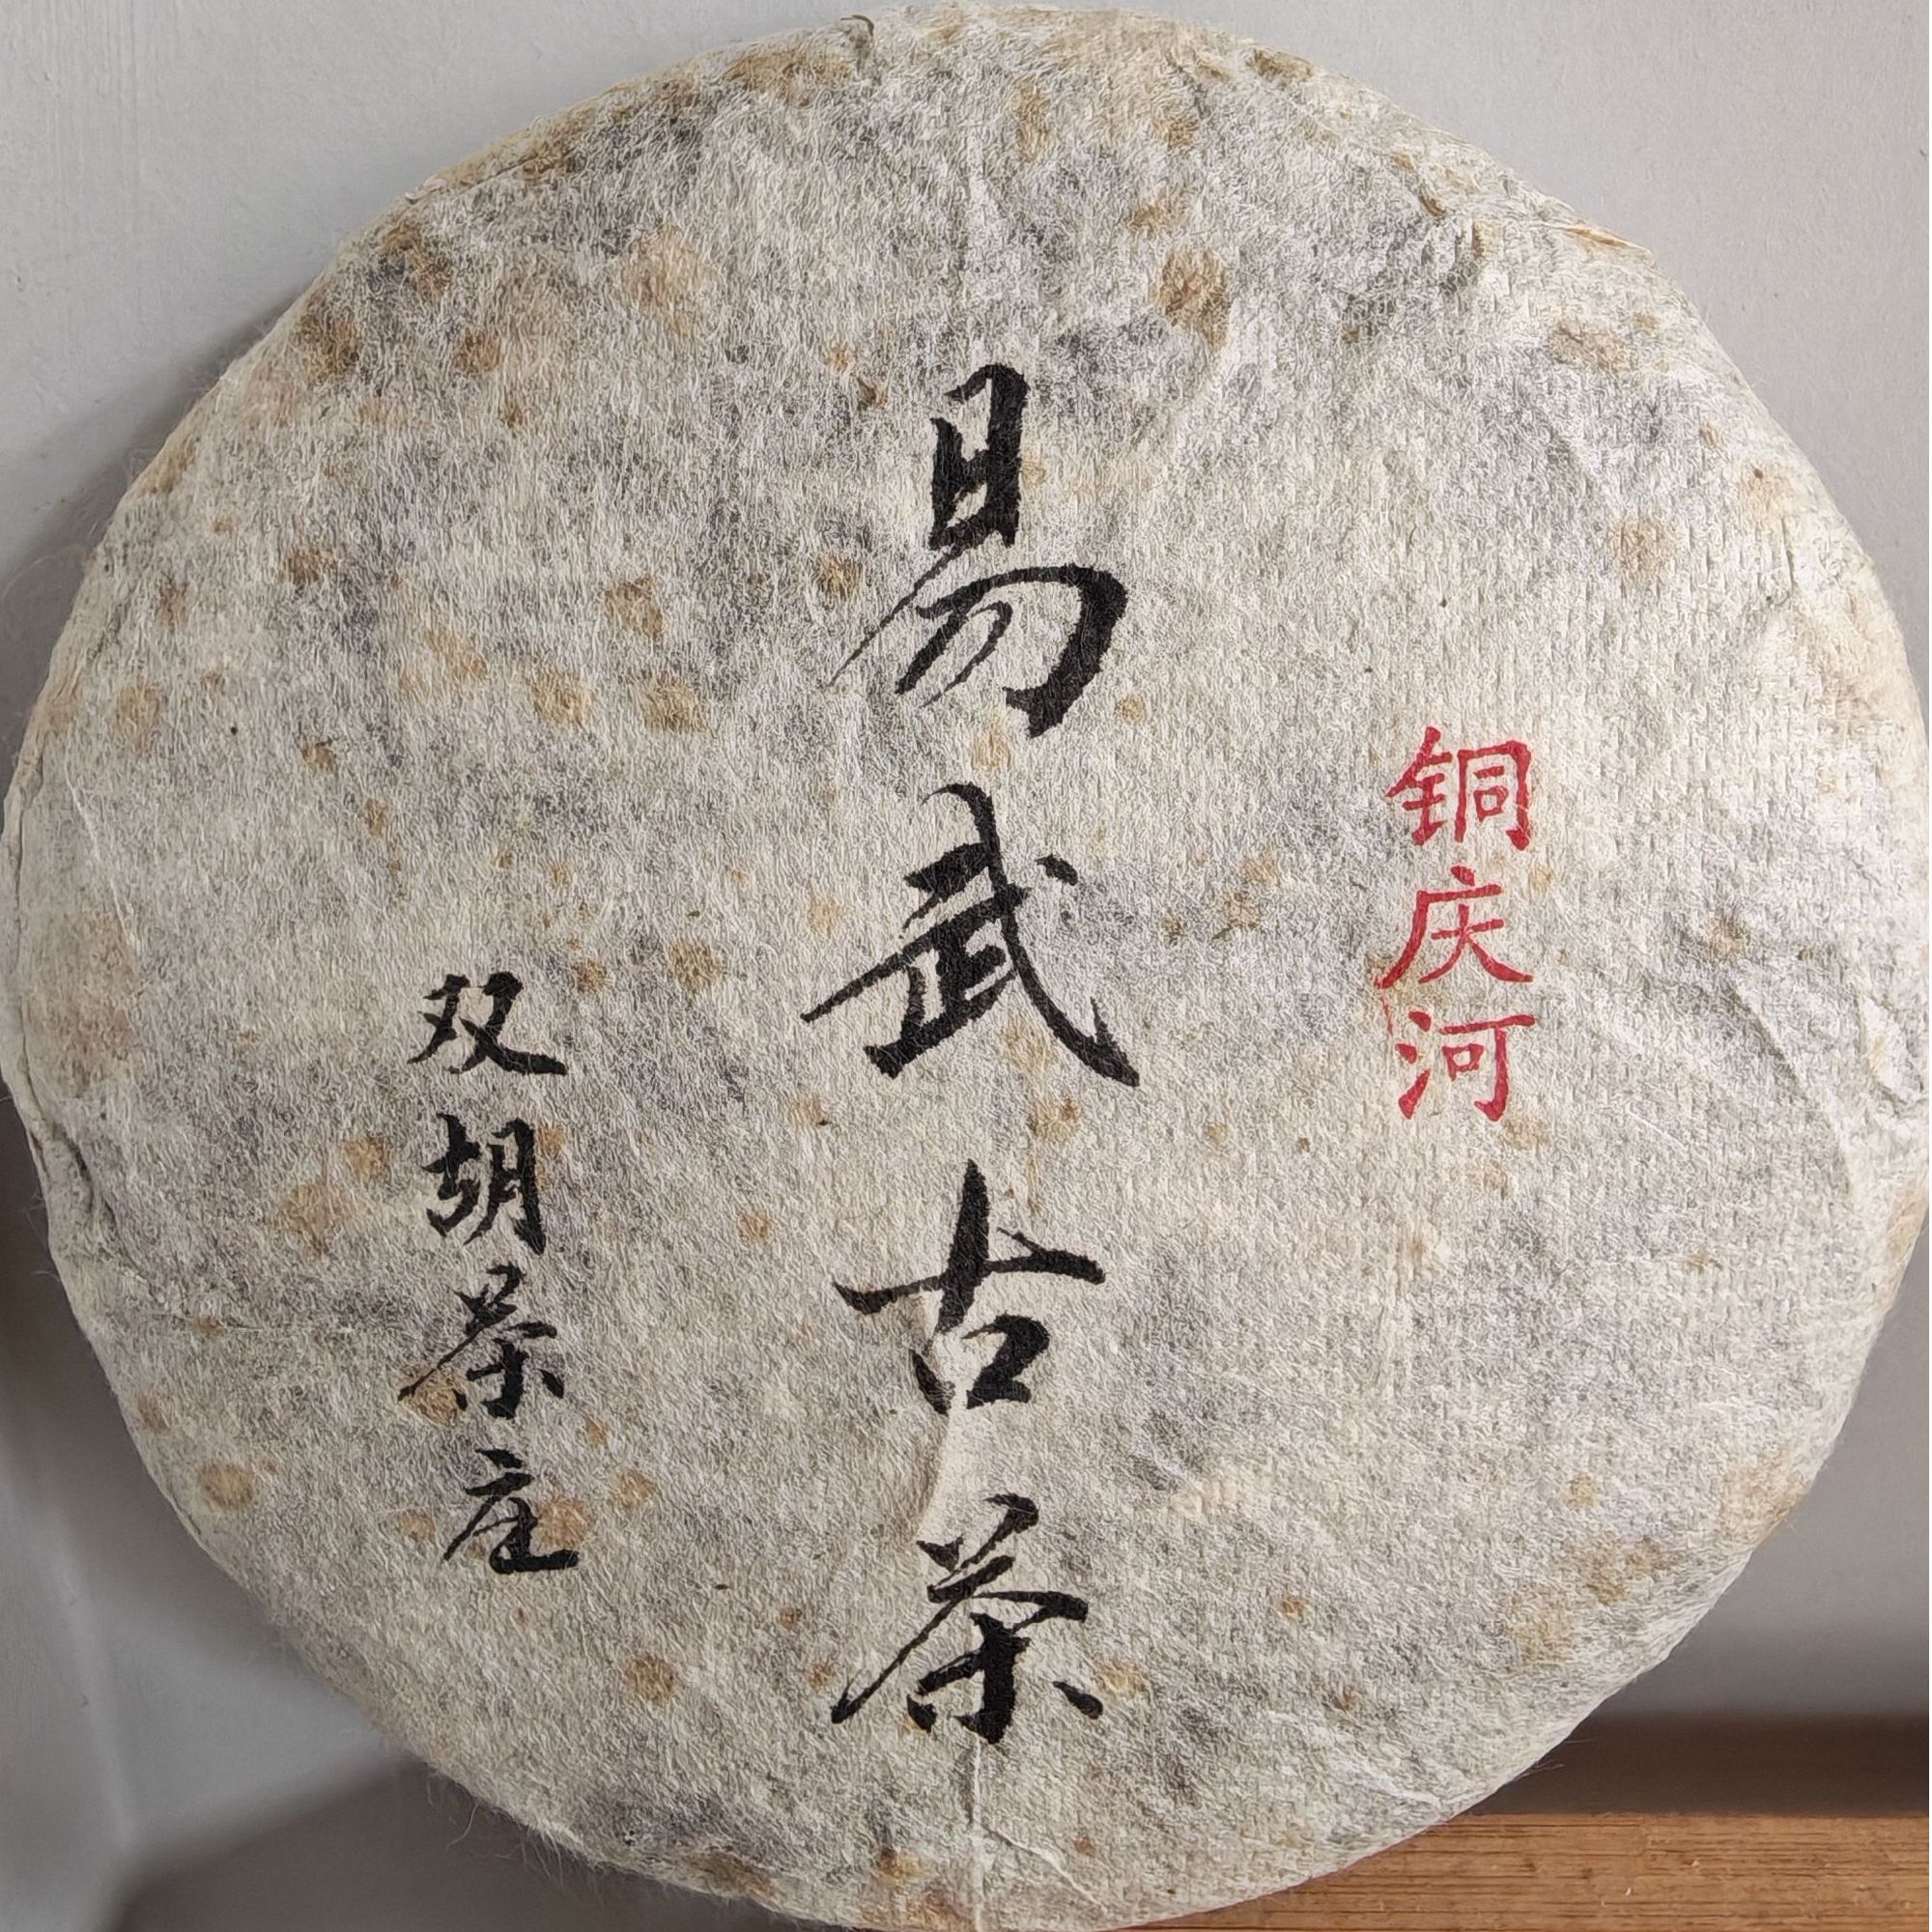 铜庆河
易武古茶
双胡茶庄